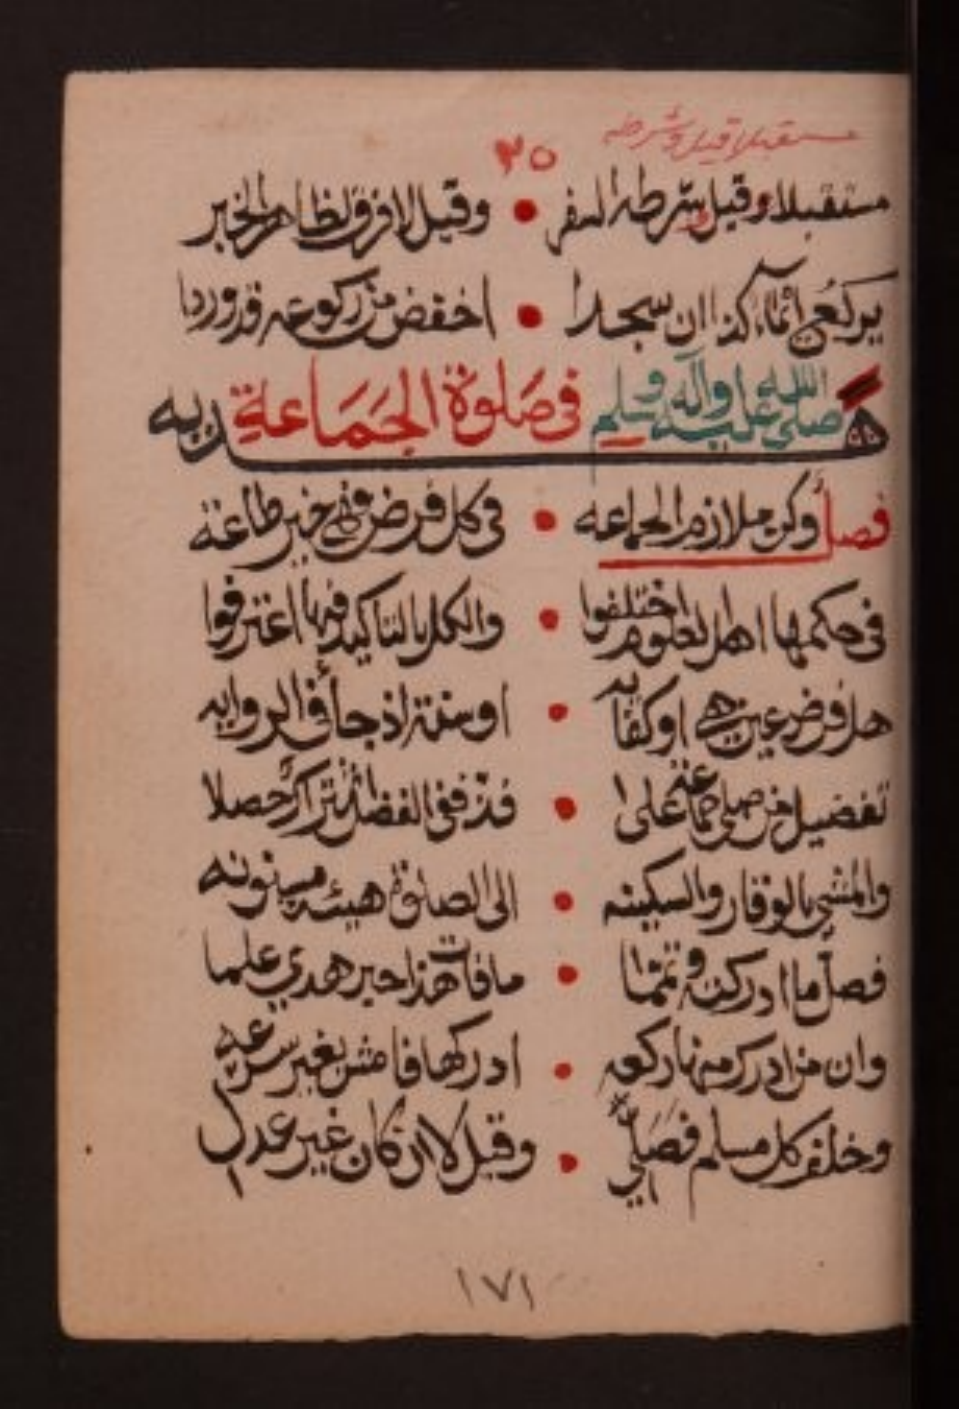 مستقبلا وقيل وشرطه
٣٥
مستقبلا وقيل شرطه السفر • وقيل لا فرق لظاهر الخبر
يركع إيماء كذا ان سجدا • اخفض من ركوعه قد وردا
هديه صلى الله عليه وآله وسلم في صلوة الجماعة
فصل وكن ملازم الجماعه • في كل فرض فهي خير طاعة
في حكمها اهل العلوم اختلفوا • والكل بالتاكيد فيها اعترفوا
هل فرض عين هي او كفايه • او سنة اذ جاء في الروايه
تفضيل من صلى جماعة على • فذ ففي الفضل اشتراك حصلا
والمشي بالوقار والسكينه • الى الصلوة هيئة مسنونه
فصل ما ادركته وتمما • ما فات هذا خير هدي علما
وان من ادرك منها ركعه • ادركها فامش بغير سرعه
وخلف كل مسلم فصلي • وقيل لا ان كان غير عدل
١٧١